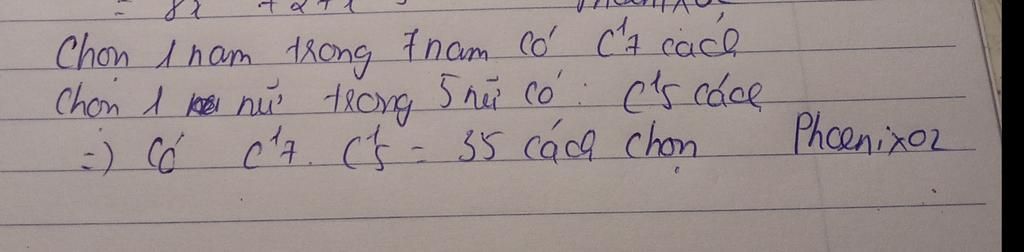 Chọn 1 nam trong 7 nam có C¹7 cách
Chọn 1 nữ trong 5 nữ có : C¹5 cách
=) Có C¹7 . C¹5 = 35 cách chọn Phoenix02